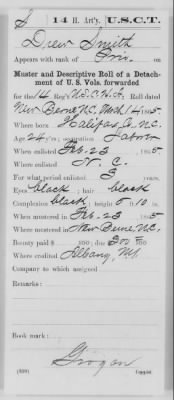 S 14 H. Art'y. U.S.C.T.
Drew Smith
Appears with rank of Priv. on
Muster and Descriptive Roll of a Detach-
ment of U. S. Vols. forwarded
for the 14 Reg't U.S.C.H.A. Roll dated
New Berne, N.C. Mch 14, 1865
Where born Halifax Co, N.C.
Age 24 y'rs; occupation Laborer
When enlisted Feb. 23, 1865
Where enlisted N. C.
For what period enlisted 3 years.
Eyes black; hair black
Complexion black; height 5 ft. 10 in.
When mustered in Feb. 23, 1865
Where mustered in New Berne, N.C.
Bounty paid $ 100; due $ 300 100
Where credited Albany, NY.
Company to which assigned
Remarks:
Book mark:
Grogan
Copyist.